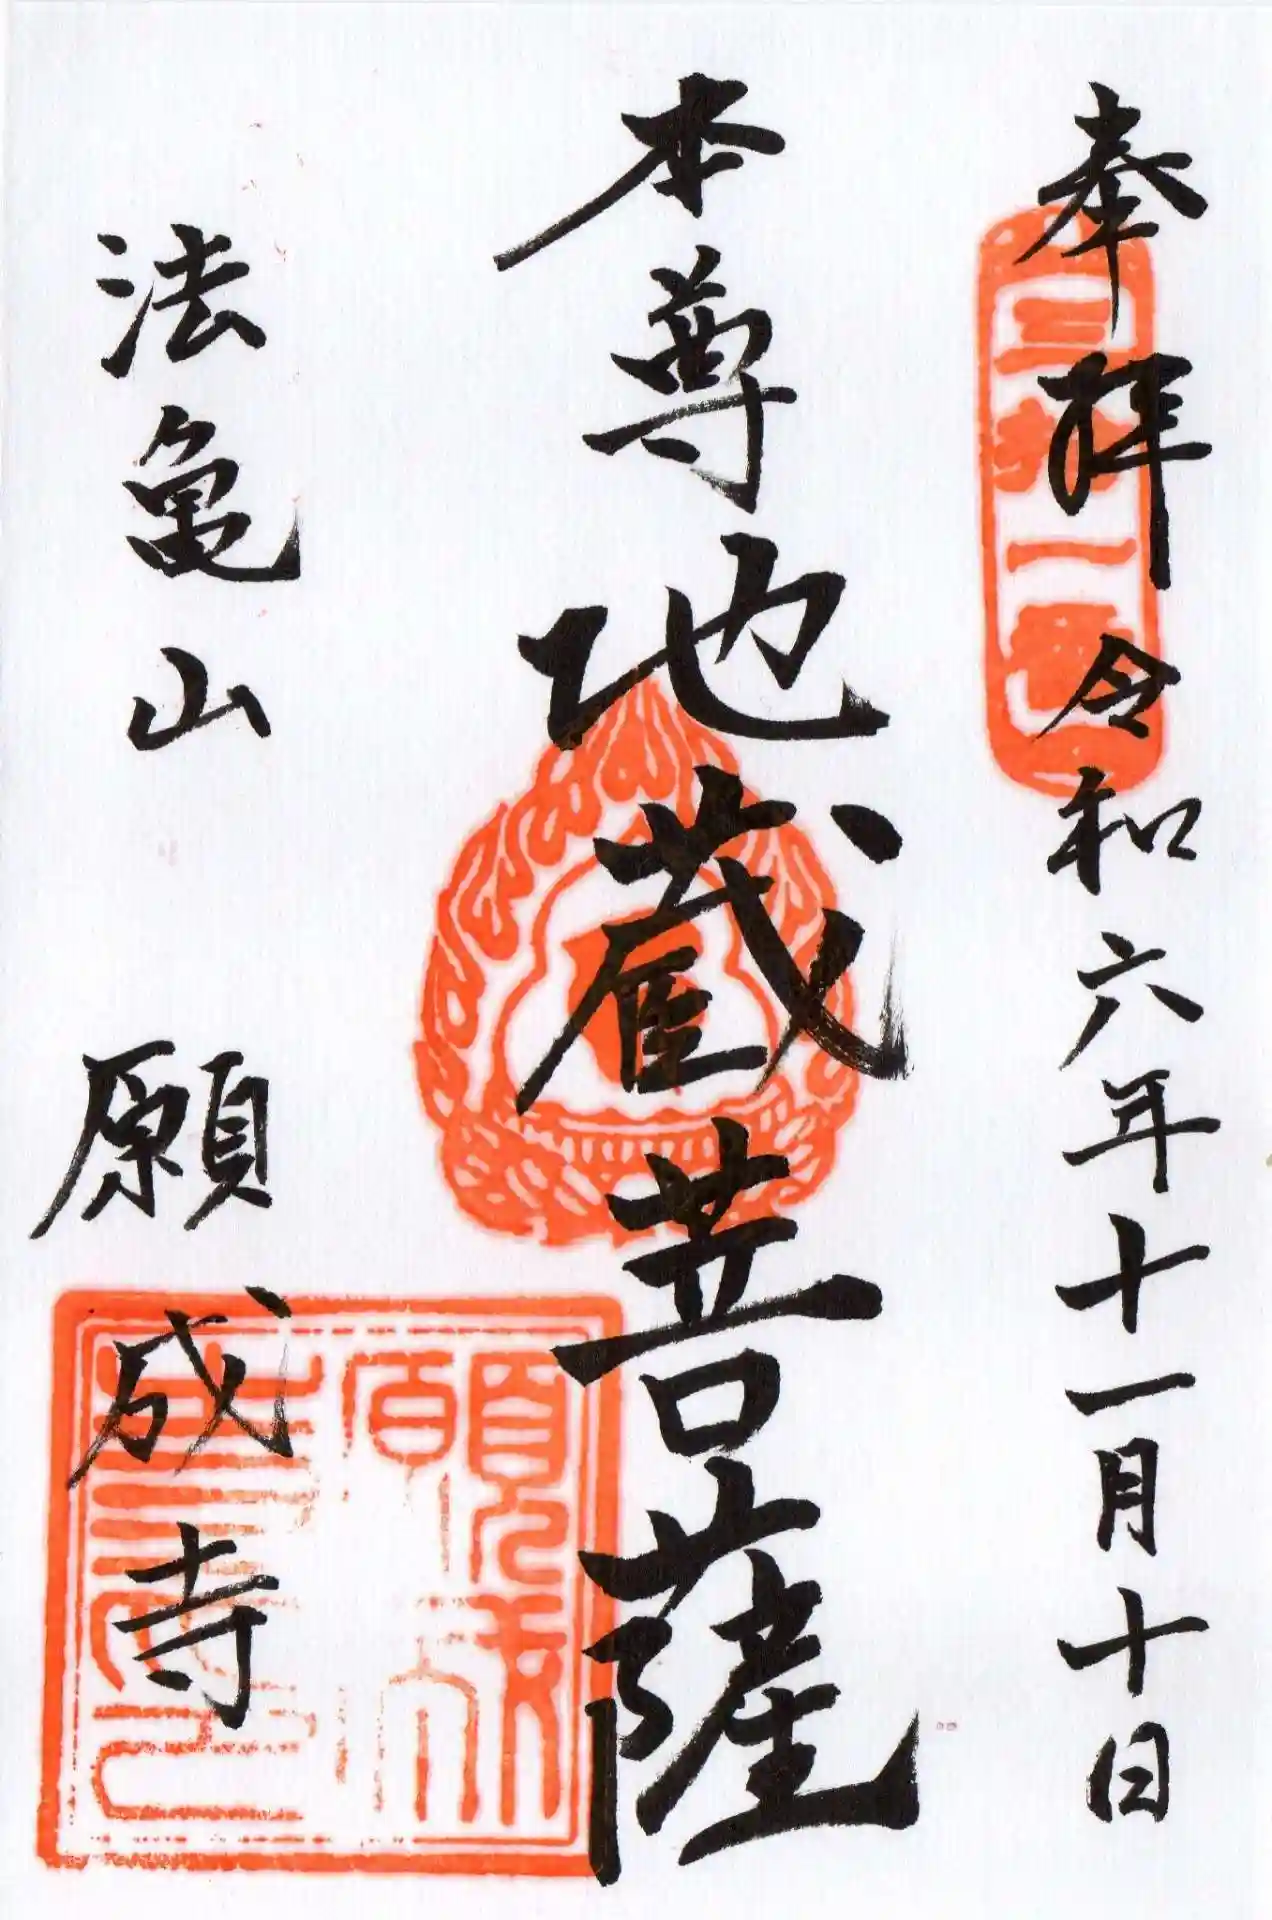 奉拝 令和六年十一月十日
三拾一番
本尊地蔵菩薩
法亀山 願成寺